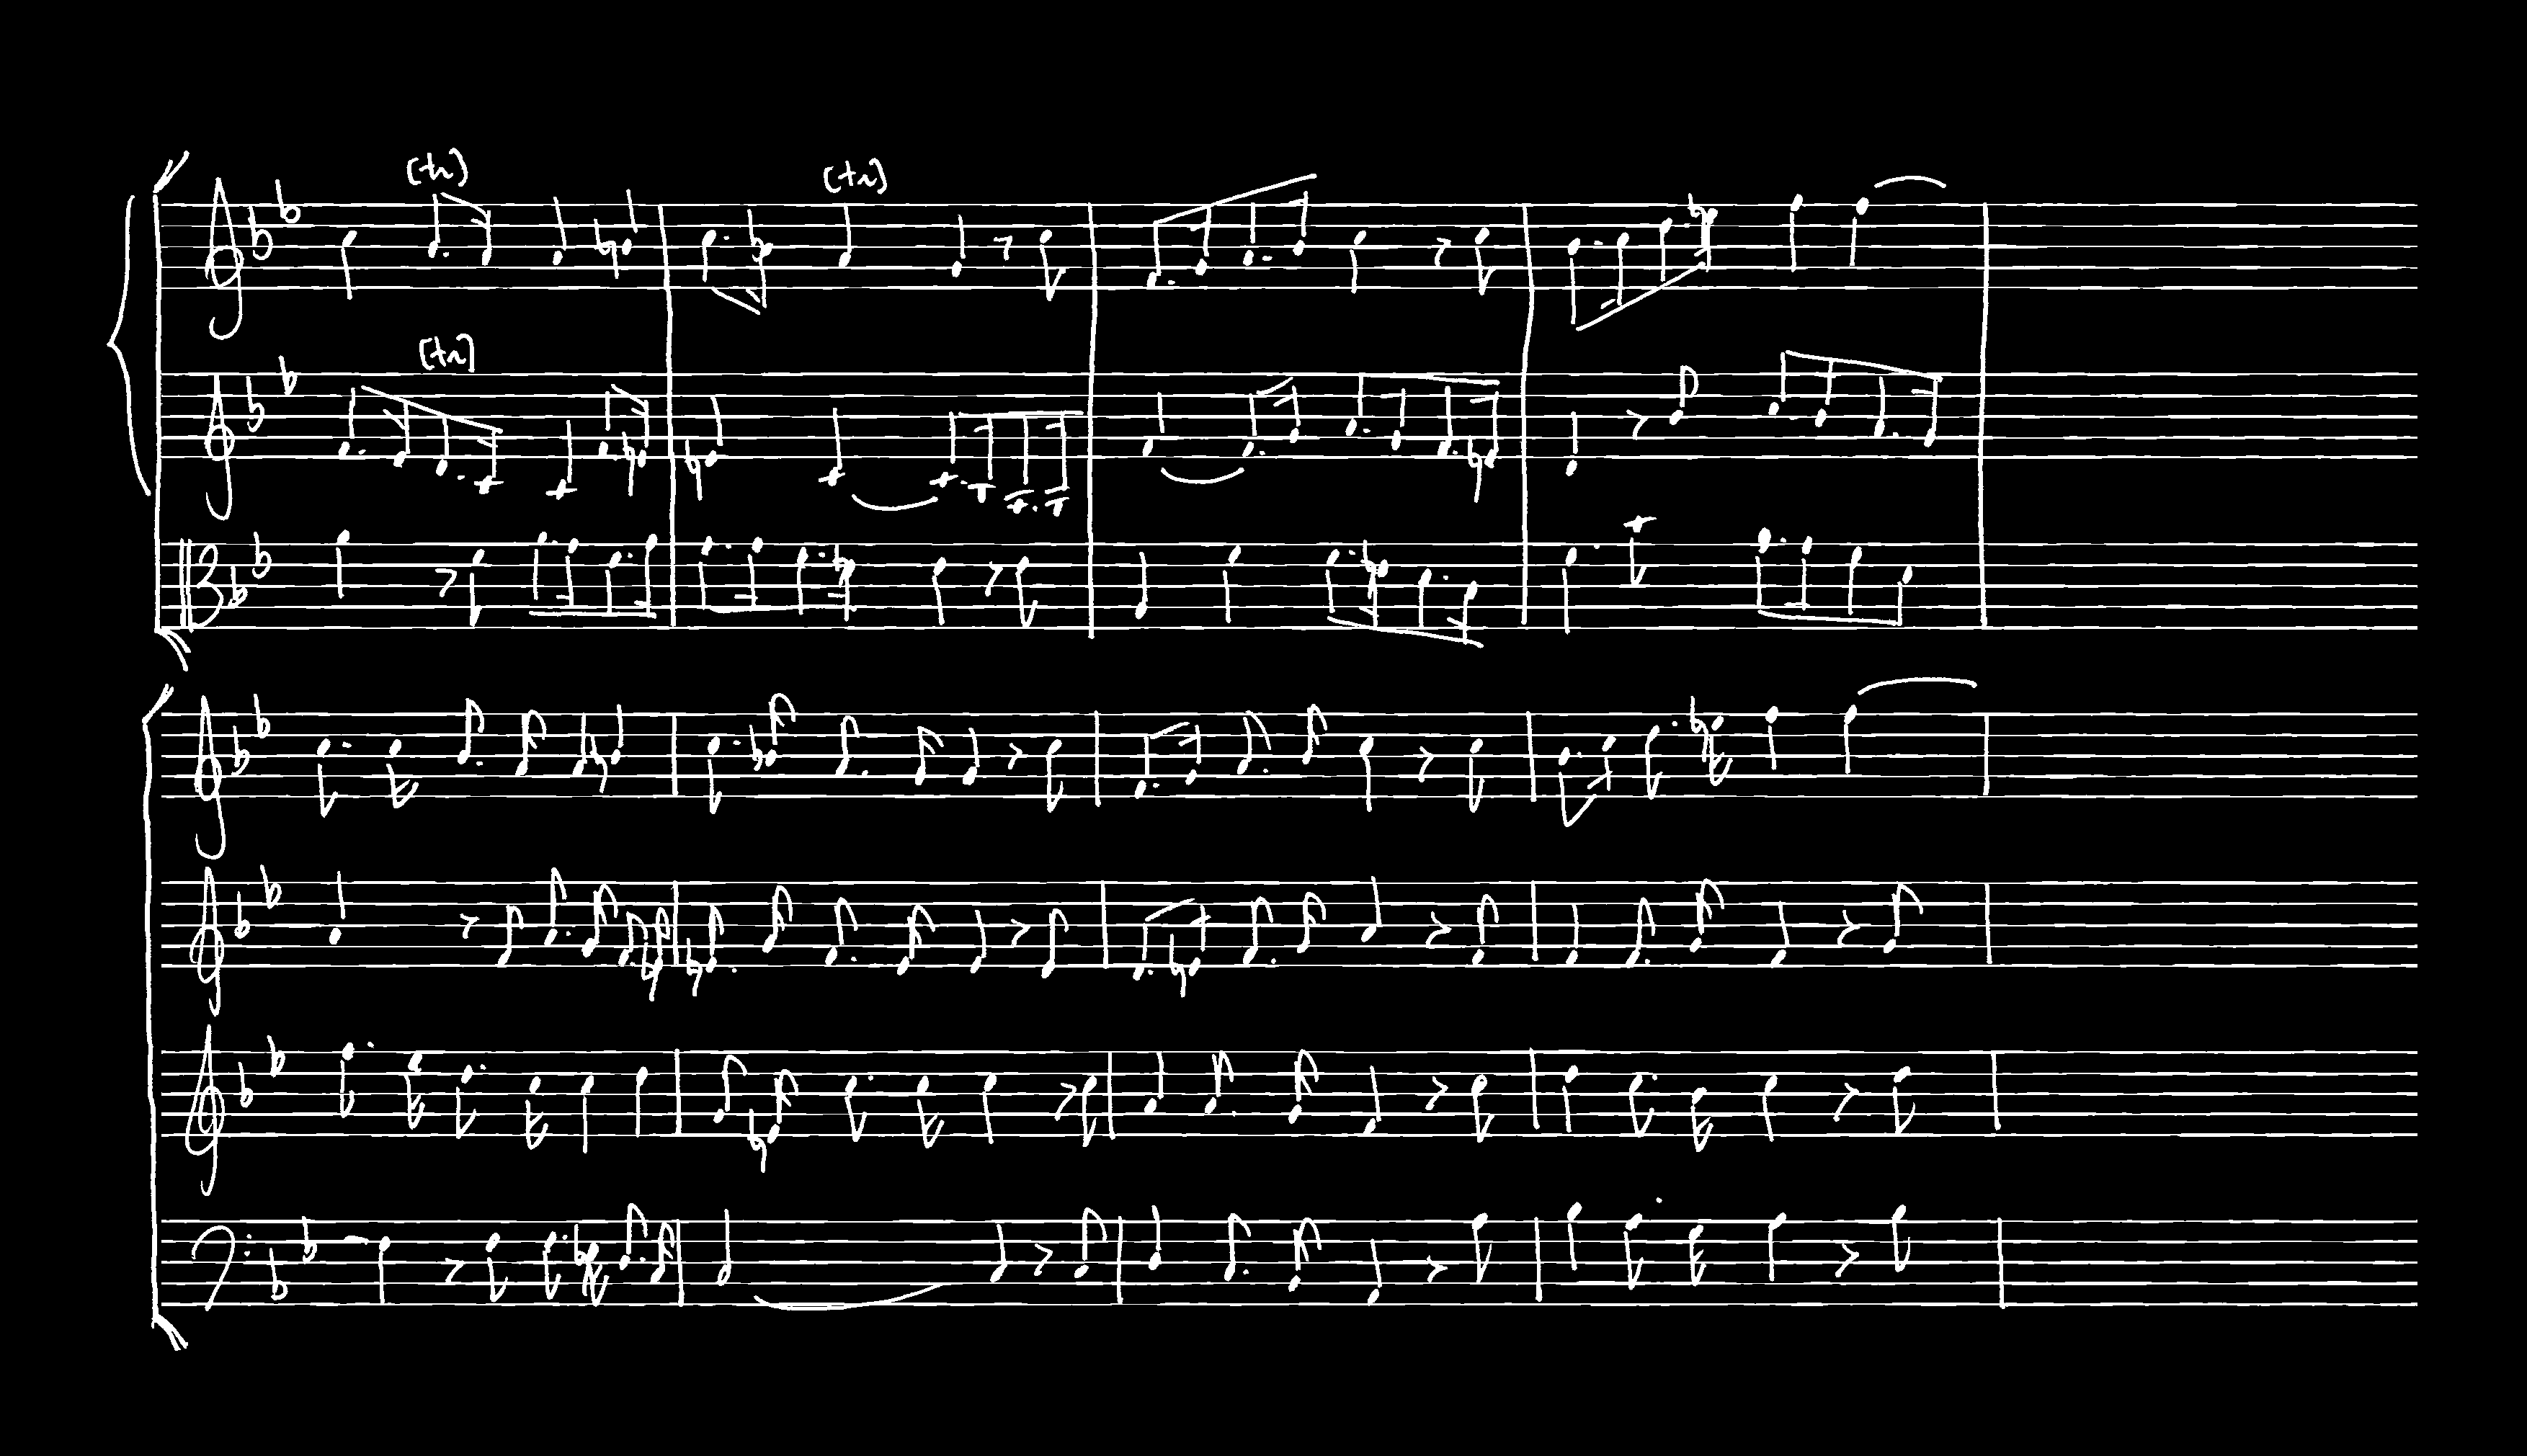 (tr) (tr)
[tr]